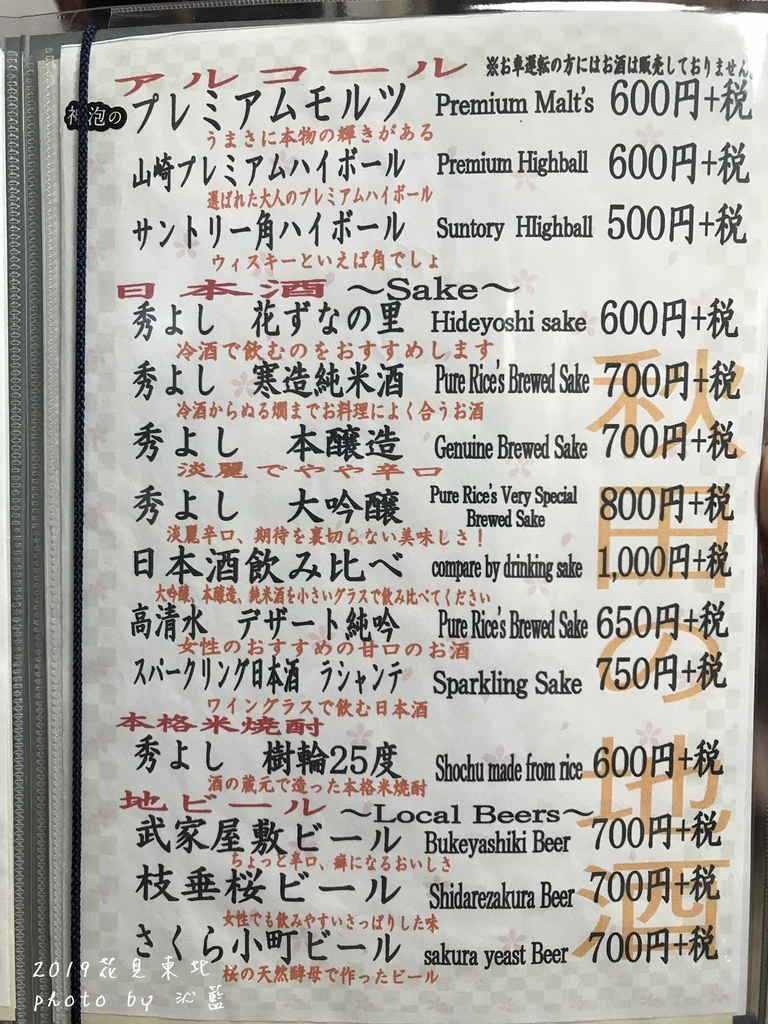 アルコール ※お車運転の方にはお酒は販売しておりません。
神泡の プレミアムモルツ Premium Malt's 600円+税
うまさに本物の輝きがある
山崎プレミアムハイボール Premium Highball 600円+税
選ばれた大人のプレミアムハイボール
サントリー角ハイボール Suntory HIighball 500円+税
ウィスキーといえば角でしょ
日本酒 ～Sake～
秀よし 花ずなの里 Hideyoshi sake 600円+税
冷酒で飲むのをおすすめします
秀よし 寒造純米酒 Pure Rice's Brewed Sake 700円+税
冷酒からぬる燗までお料理によく合うお酒
秀よし 本醸造 Genuine Brewed Sake 700円+税
淡麗でやや辛口
秀よし 大吟醸 Pure Rice's Very Special Brewed Sake 800円+税
淡麗辛口、期待を裏切らない美味しさ！
日本酒飲み比べ compare by drinking sake 1,000円+税
大吟醸、本醸造、純米酒を小さいグラスで飲み比べてください
高清水 デザート純吟 Pure Rice's Brewed Sake 650円+税
女性のおすすめの甘口のお酒
スパークリング日本酒 ラシャンテ Sparkling Sake 750円+税
ワイングラスで飲む日本酒
本格米焼酎
秀よし 樹輪25度 Shochu made from rice 600円+税
酒の蔵元で造った本格米焼酎
地ビール ～Local Beers～
武家屋敷ビール Bukeyashiki Beer 700円+税
ちょっと辛口、癖になるおいしさ
枝垂桜ビール Shidarezakura Beer 700円+税
女性でも飲みやすいさっぱりした味
さくら小町ビール sakura yeast Beer 700円+税
桜の天然酵母で作ったビール
秋田の地酒
2019花見東北
photo by 沁藍